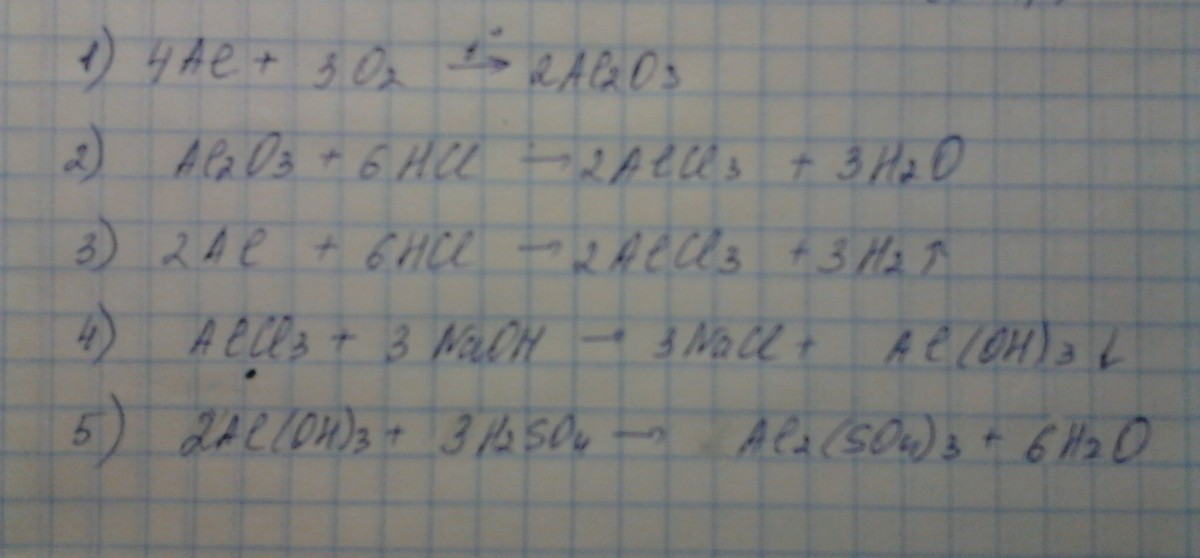 1) 4Al + 3O₂ →t° 2Al₂O₃
2) Al₂O₃ + 6HCl → 2AlCl₃ + 3H₂O
3) 2Al + 6HCl → 2AlCl₃ + 3H₂↑
4) AlCl₃ + 3NaOH → 3NaCl + Al(OH)₃↓
5) 2Al(OH)₃ + 3H₂SO₄ → Al₂(SO₄)₃ + 6H₂O